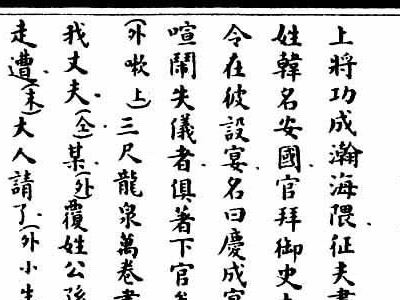 上將功成瀚海隈征夫書
姓韓名安國官拜御史大
令在彼設宴名曰慶成宴
喧鬧失儀者俱著下官糸
(外嗽上)三尺龍泉萬卷書
我丈夫(仝)某(外)覆姓公孫
走遭(末)大人請了(外小生